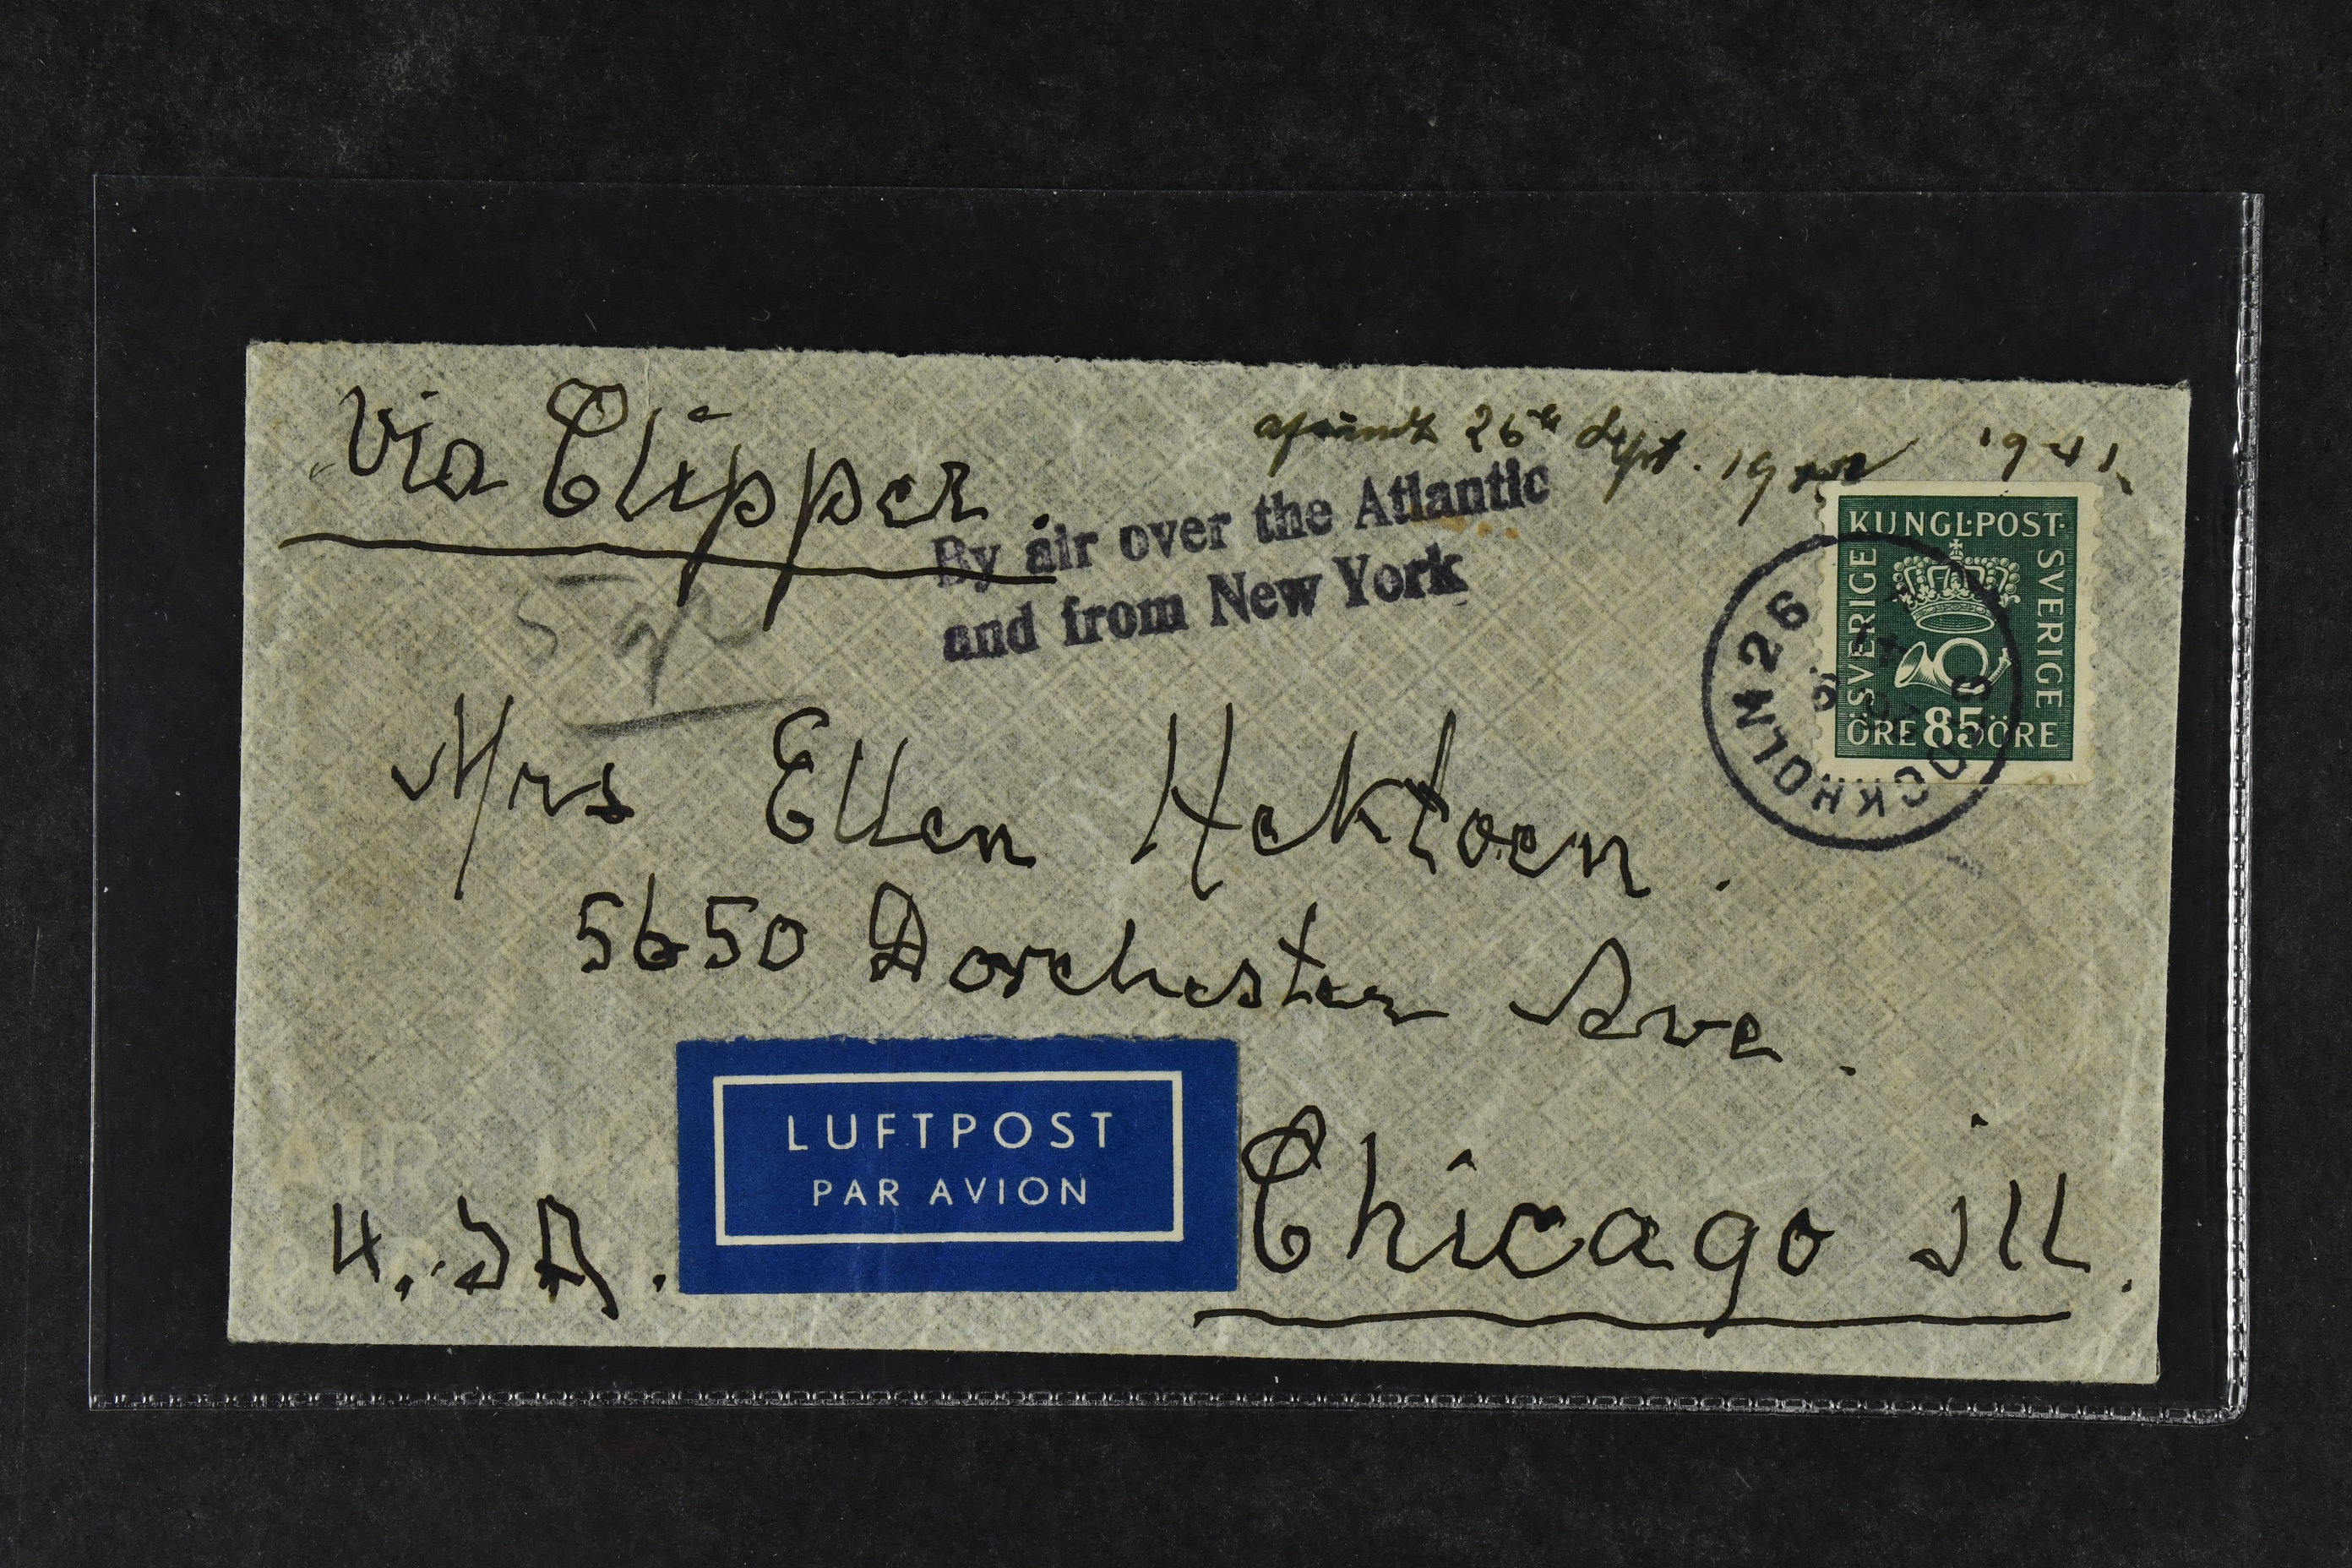 Via Clipper.
26th Sept. 19 1941.
By air over the Atlantic
and from New York
KUNGL·POST·
SVERIGE
SVERIGE
ÖRE 85 ÖRE
STOCKHOLM 26
5 gr
Mrs Ellen Hektoen.
5650 Dorchester Ave.
LUFTPOST
PAR AVION
Chicago Ill.
U.SA.